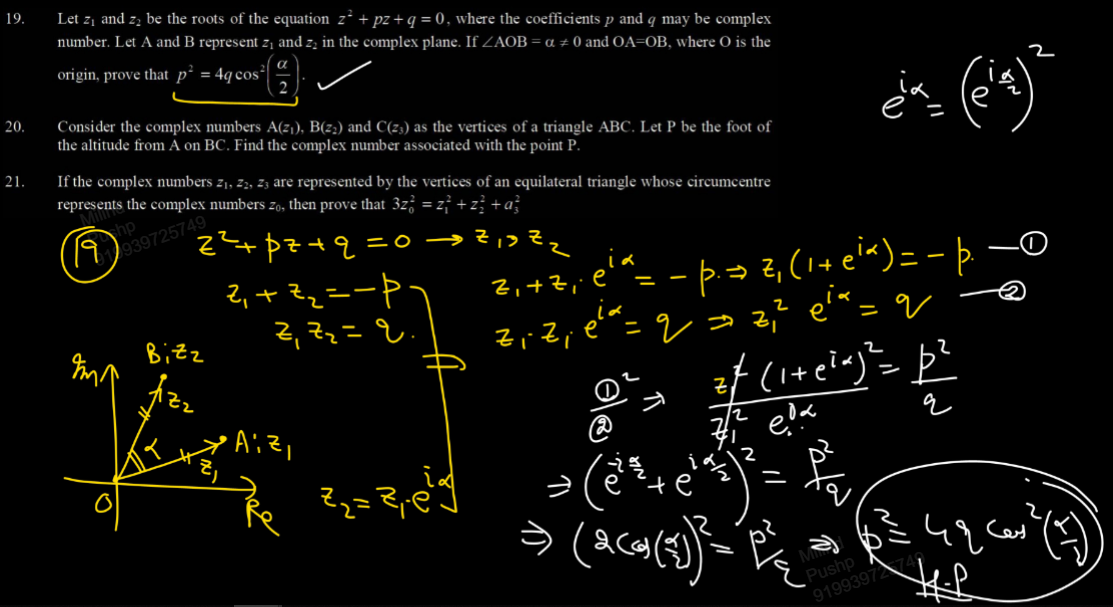 19. Let z₁ and z₂ be the roots of the equation z² + pz + q = 0, where the coefficients p and q may be complex
number. Let A and B represent z₁ and z₂ in the complex plane. If ∠AOB = α ≠ 0 and OA=OB, where O is the
origin, prove that p² = 4q cos²(α/2).
e^{iα} = (e^{iα/2})²
20. Consider the complex numbers A(z₁), B(z₂) and C(z₃) as the vertices of a triangle ABC. Let P be the foot of
the altitude from A on BC. Find the complex number associated with the point P.
21. If the complex numbers z₁, z₂, z₃ are represented by the vertices of an equilateral triangle whose circumcentre
represents the complex numbers z₀, then prove that 3z₀² = z₁² + z₂² + a₃²
Pushp
919939725749
19
z² + pz + q = 0 → z₁, z₂
z₁ + z₂ = -p
z₁z₂ = q.
z₁ + z₁.e^{iα} = -p. ⇒ z₁(1 + e^{iα}) = -p. — ①
z₁.z₁e^{iα} = q ⇒ z₁² e^{iα} = q — ②
Im
B;z₂
z₂
α
A;z₁
z₁
O
Re
z₂ = z₁.e^{iα}
①²/② ⇒ z₁²(1 + e^{iα})²/z₁² e^{iα} = p²/q
⇒ (e^{-iα/2} + e^{iα/2})² = p²/q
⇒ (2cos(α/2))² = p²/q ⇒ p² = 4q cos²(α/2)
H.P
Milind
Pushp
919939725749